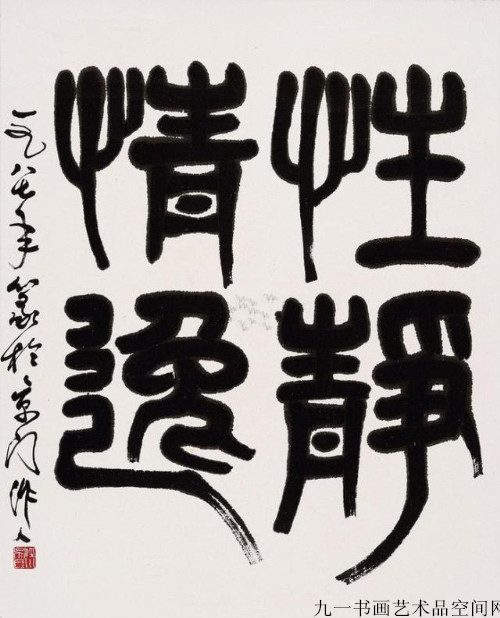 性靜
情逸
一九八七年篆於京門 作人
九一书画艺术品空间网